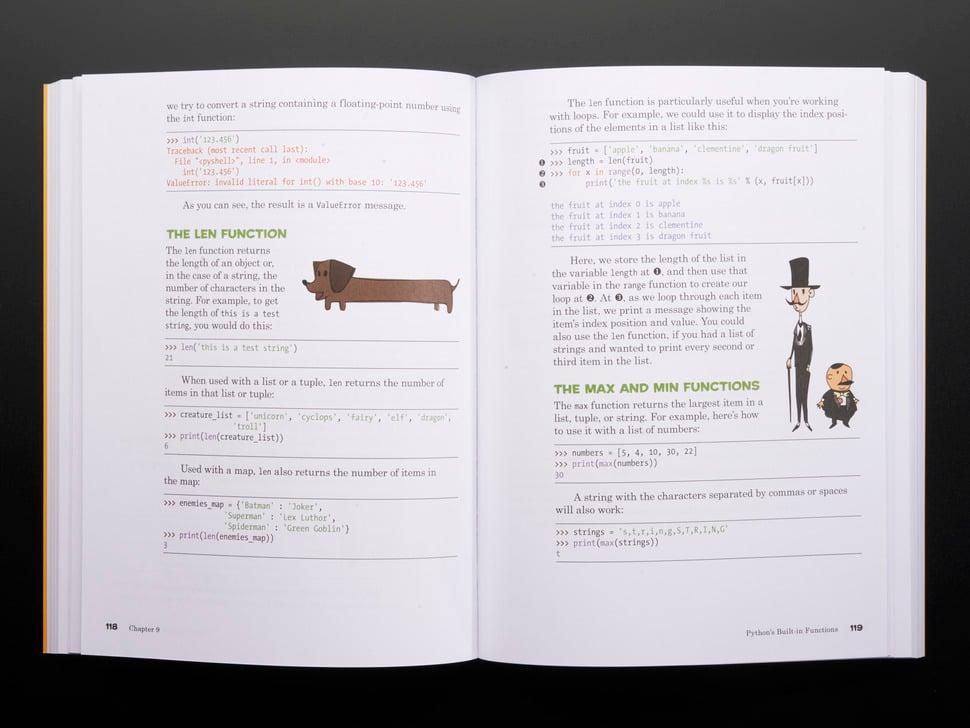 we try to convert a string containing a floating-point number using
the int function:
>>> int('123.456')
Traceback (most recent call last):
File "<pyshell>", line 1, in <module>
int('123.456')
ValueError: invalid literal for int() with base 10: '123.456'
As you can see, the result is a ValueError message.
THE LEN FUNCTION
The len function returns
the length of an object or,
in the case of a string, the
number of characters in the
string. For example, to get
the length of this is a test
string, you would do this:
>>> len('this is a test string')
21
When used with a list or a tuple, len returns the number of
items in that list or tuple:
>>> creature_list = ['unicorn', 'cyclops', 'fairy', 'elf', 'dragon',
'troll']
>>> print(len(creature_list))
6
Used with a map, len also returns the number of items in
the map:
>>> enemies_map = {'Batman' : 'Joker',
'Superman' : 'Lex Luthor',
'Spiderman' : 'Green Goblin'}
>>> print(len(enemies_map))
3
118 Chapter 9
The len function is particularly useful when you're working
with loops. For example, we could use it to display the index posi-
tions of the elements in a list like this:
>>> fruit = ['apple', 'banana', 'clementine', 'dragon fruit']
❶ >>> length = len(fruit)
❷ >>> for x in range(0, length):
❸ print('the fruit at index %s is %s' % (x, fruit[x]))
the fruit at index 0 is apple
the fruit at index 1 is banana
the fruit at index 2 is clementine
the fruit at index 3 is dragon fruit
Here, we store the length of the list in
the variable length at ❶, and then use that
variable in the range function to create our
loop at ❷. At ❸, as we loop through each item
in the list, we print a message showing the
item's index position and value. You could
also use the len function, if you had a list of
strings and wanted to print every second or
third item in the list.
THE MAX AND MIN FUNCTIONS
The max function returns the largest item in a
list, tuple, or string. For example, here's how
to use it with a list of numbers:
>>> numbers = [5, 4, 10, 30, 22]
>>> print(max(numbers))
30
A string with the characters separated by commas or spaces
will also work:
>>> strings = 's,t,r,i,n,g,S,T,R,I,N,G'
>>> print(max(strings))
t
Python's Built-in Functions 119